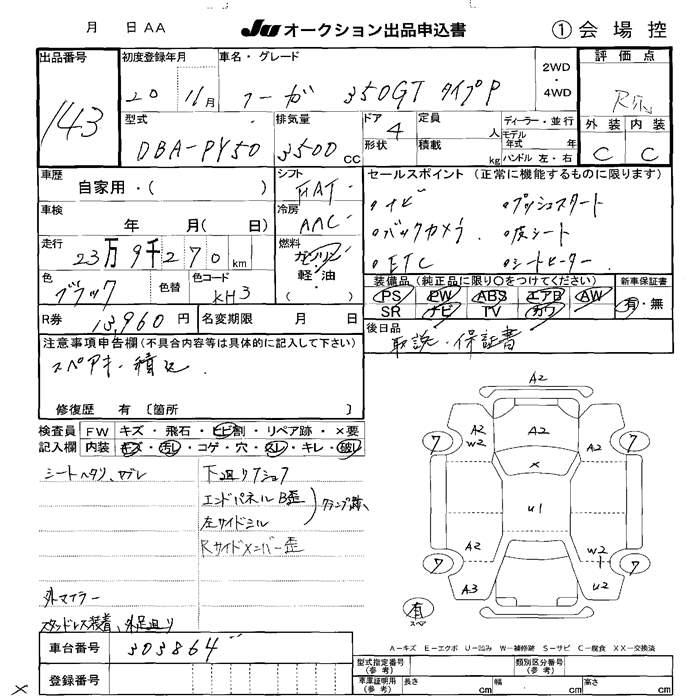 月 日 AA JU オークション出品申込書 ①会場控
出品番号 初度登録年月 車名・グレード 2WD・4WD 評価点
143 20 16月 フーガ 350GT タイプP
外装 内装
C C
型式 排気量 ドア 定員 人 ディーラー・並行
DBA-PY50 3500CC 4 形状 積載 kg モデル年式 年 ハンドル 左・右
車歴 自家用・( ) シフト セールスポイント (正常に機能するものに限ります)
車検 年 月( 日) 冷房 AAC
ナビ プッシュスタート
バックカメラ 皮シート
ETC シートヒーター
走行 23万9千270km 燃料 ガソリン 軽・油 ( )
色 ブラック 色替 色コード KH3
装備品 (純正品に限り○をつけてください) 新車保証書
PS PW ABS エアB AW 有・無
SR ナビ TV カワ
R券 13,960円 名変期限 月 日
後日品 取説・保証書
注意事項申告欄(不具合内容等は具体的に記入して下さい)
スペアキー積込
修復歴 有 〔箇所 〕
検査員 FW キズ・飛石・ヒビ割・リペア跡・×要
記入欄 内装 キズ・汚レ・コゲ・穴・スレ・キレ・破レ
シートヘタリ、スレ 下廻りサビ
エンドパネルB歪
左サイドシル クランプ跡
Rサイドメンバー歪
外マイラー
スタッドレス装着、外足廻り
A2
7 A2 W2 A2 A2 7
×
U1
7 A2 W2 7
A3 U2
有 スペア
A-キズ E-エクボ U-凹み W-補修跡 S-サビ C-腐食 XX-交換済
車台番号 303864
登録番号
型式指定番号(参考) 類別区分番号(参考)
車庫証明用(参考) 長さ cm 幅 cm 高さ cm
×